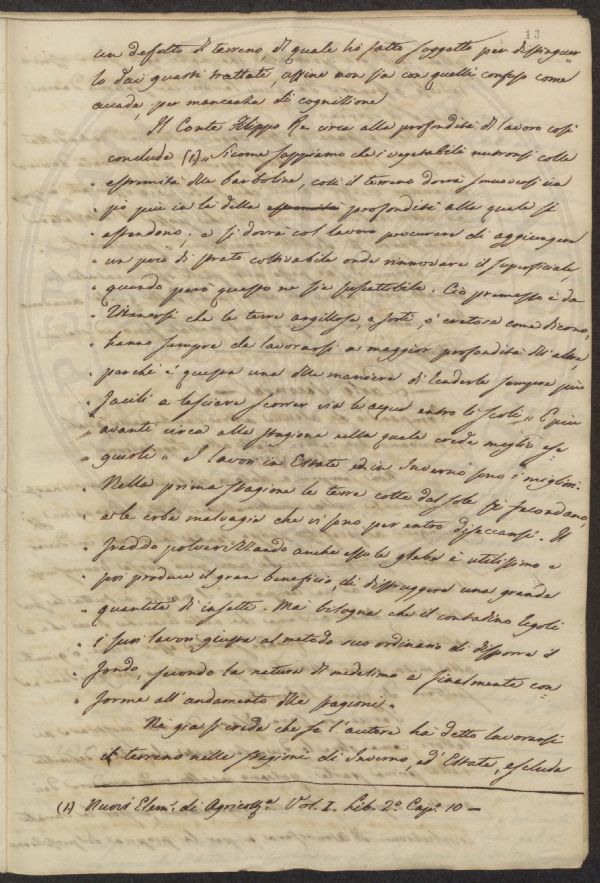 13
un difetto di terreno, di quale hò fatto soggetto per distinguer=
lo dai guasti trattati, affine non sia con quelli confuso come
accade, per mancanza di cognitione
Il Conte Filippo Re circa alla profondità di lavoro così
conclude (1) „ Sicome sappiamo che i vegetabili nutronsi colle
„ estremità delle barboline, così il terreno dovrà smuoversi un
„ pò più in là della profondità alla quale si
„ estendono; e si dovrà col lavoro procurare di aggiungere
„ un poco di strato coltivabile onde rinnovare il superficiale
„ quando però questo ne sia suscettibile. Ciò premesso è da
„ ritenersi che le terre argillose, e forti, o' cretose come dicono,
„ hanno sempre da lavorarsi a maggior profondità dell'altre,
„ perchè è questa una delle maniere di renderle sempre più
„ facili a lasciare scorrer via le acque entro li scoli „ E più
avanti circa alla stagione nella quale crede meglio ese=
guirli „ I lavori in Estate ed in Inverno sono i migliori.
„ Nella prima stagione le terre cotte dal sole si fecondano,
„ e le erbe malvagie che vi sono per entro disseccansi. Il
„ freddo polverizzando anche esso le glebe è utilissimo e
„ poi produce il gran beneficio, di distruggere una grande
„ quantità di insetti. Ma bisogna che il contadino regoli
„ i suoi lavori giusta al metodo suo ordinario di disporre il
„ fondo, secondo la natura di medesimo e finalmente con=
„ forme all'andamento delle stagioni „
Ne già si creda che se l'autore hà detto lavorarsi
il terreno nelle stagioni di Inverno, ed' Estate, escluda
(1) Nuovi Elem.i di Agricoltz.a Vol. I. Lib. 2.o Cap.o 10 —